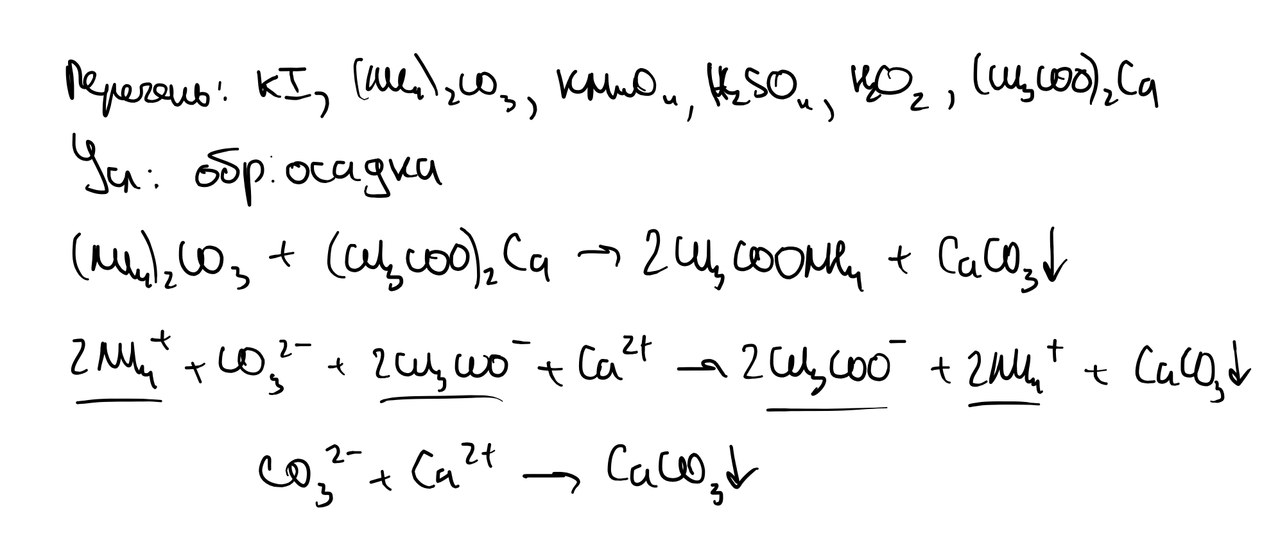 Перечень: KI, (NH₄)₂CO₃, KMnO₄, H₂SO₄, H₂O₂, (CH₃COO)₂Ca
Усл: обр. осадка
(NH₄)₂CO₃ + (CH₃COO)₂Ca → 2CH₃COONH₄ + CaCO₃↓
2NH₄⁺ + CO₃²⁻ + 2CH₃COO⁻ + Ca²⁺ → 2CH₃COO⁻ + 2NH₄⁺ + CaCO₃↓
CO₃²⁻ + Ca²⁺ → CaCO₃↓